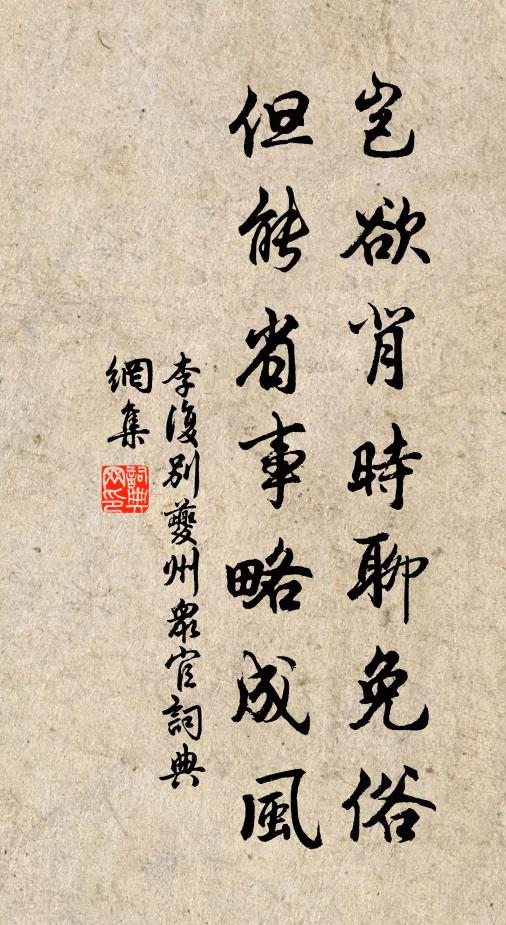 豈欲背時聊免俗
但能省事略成風
李復別夔州眾官詞典
網集
詞典
网印